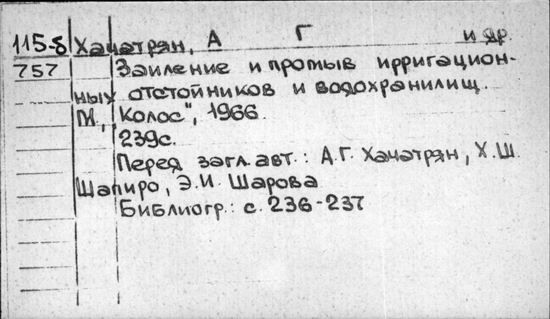 115-б Хачатрян, А Г и др.
757 Заиление и промыв ирригацион-
ных отстойников и водохранилищ.
М., "Колос", 1966.
239с.
Перед загл. авт.: А.Г. Хачатрян, Х.Ш.
Шапиро, Э.И. Шарова
Библиогр.: с. 236-237